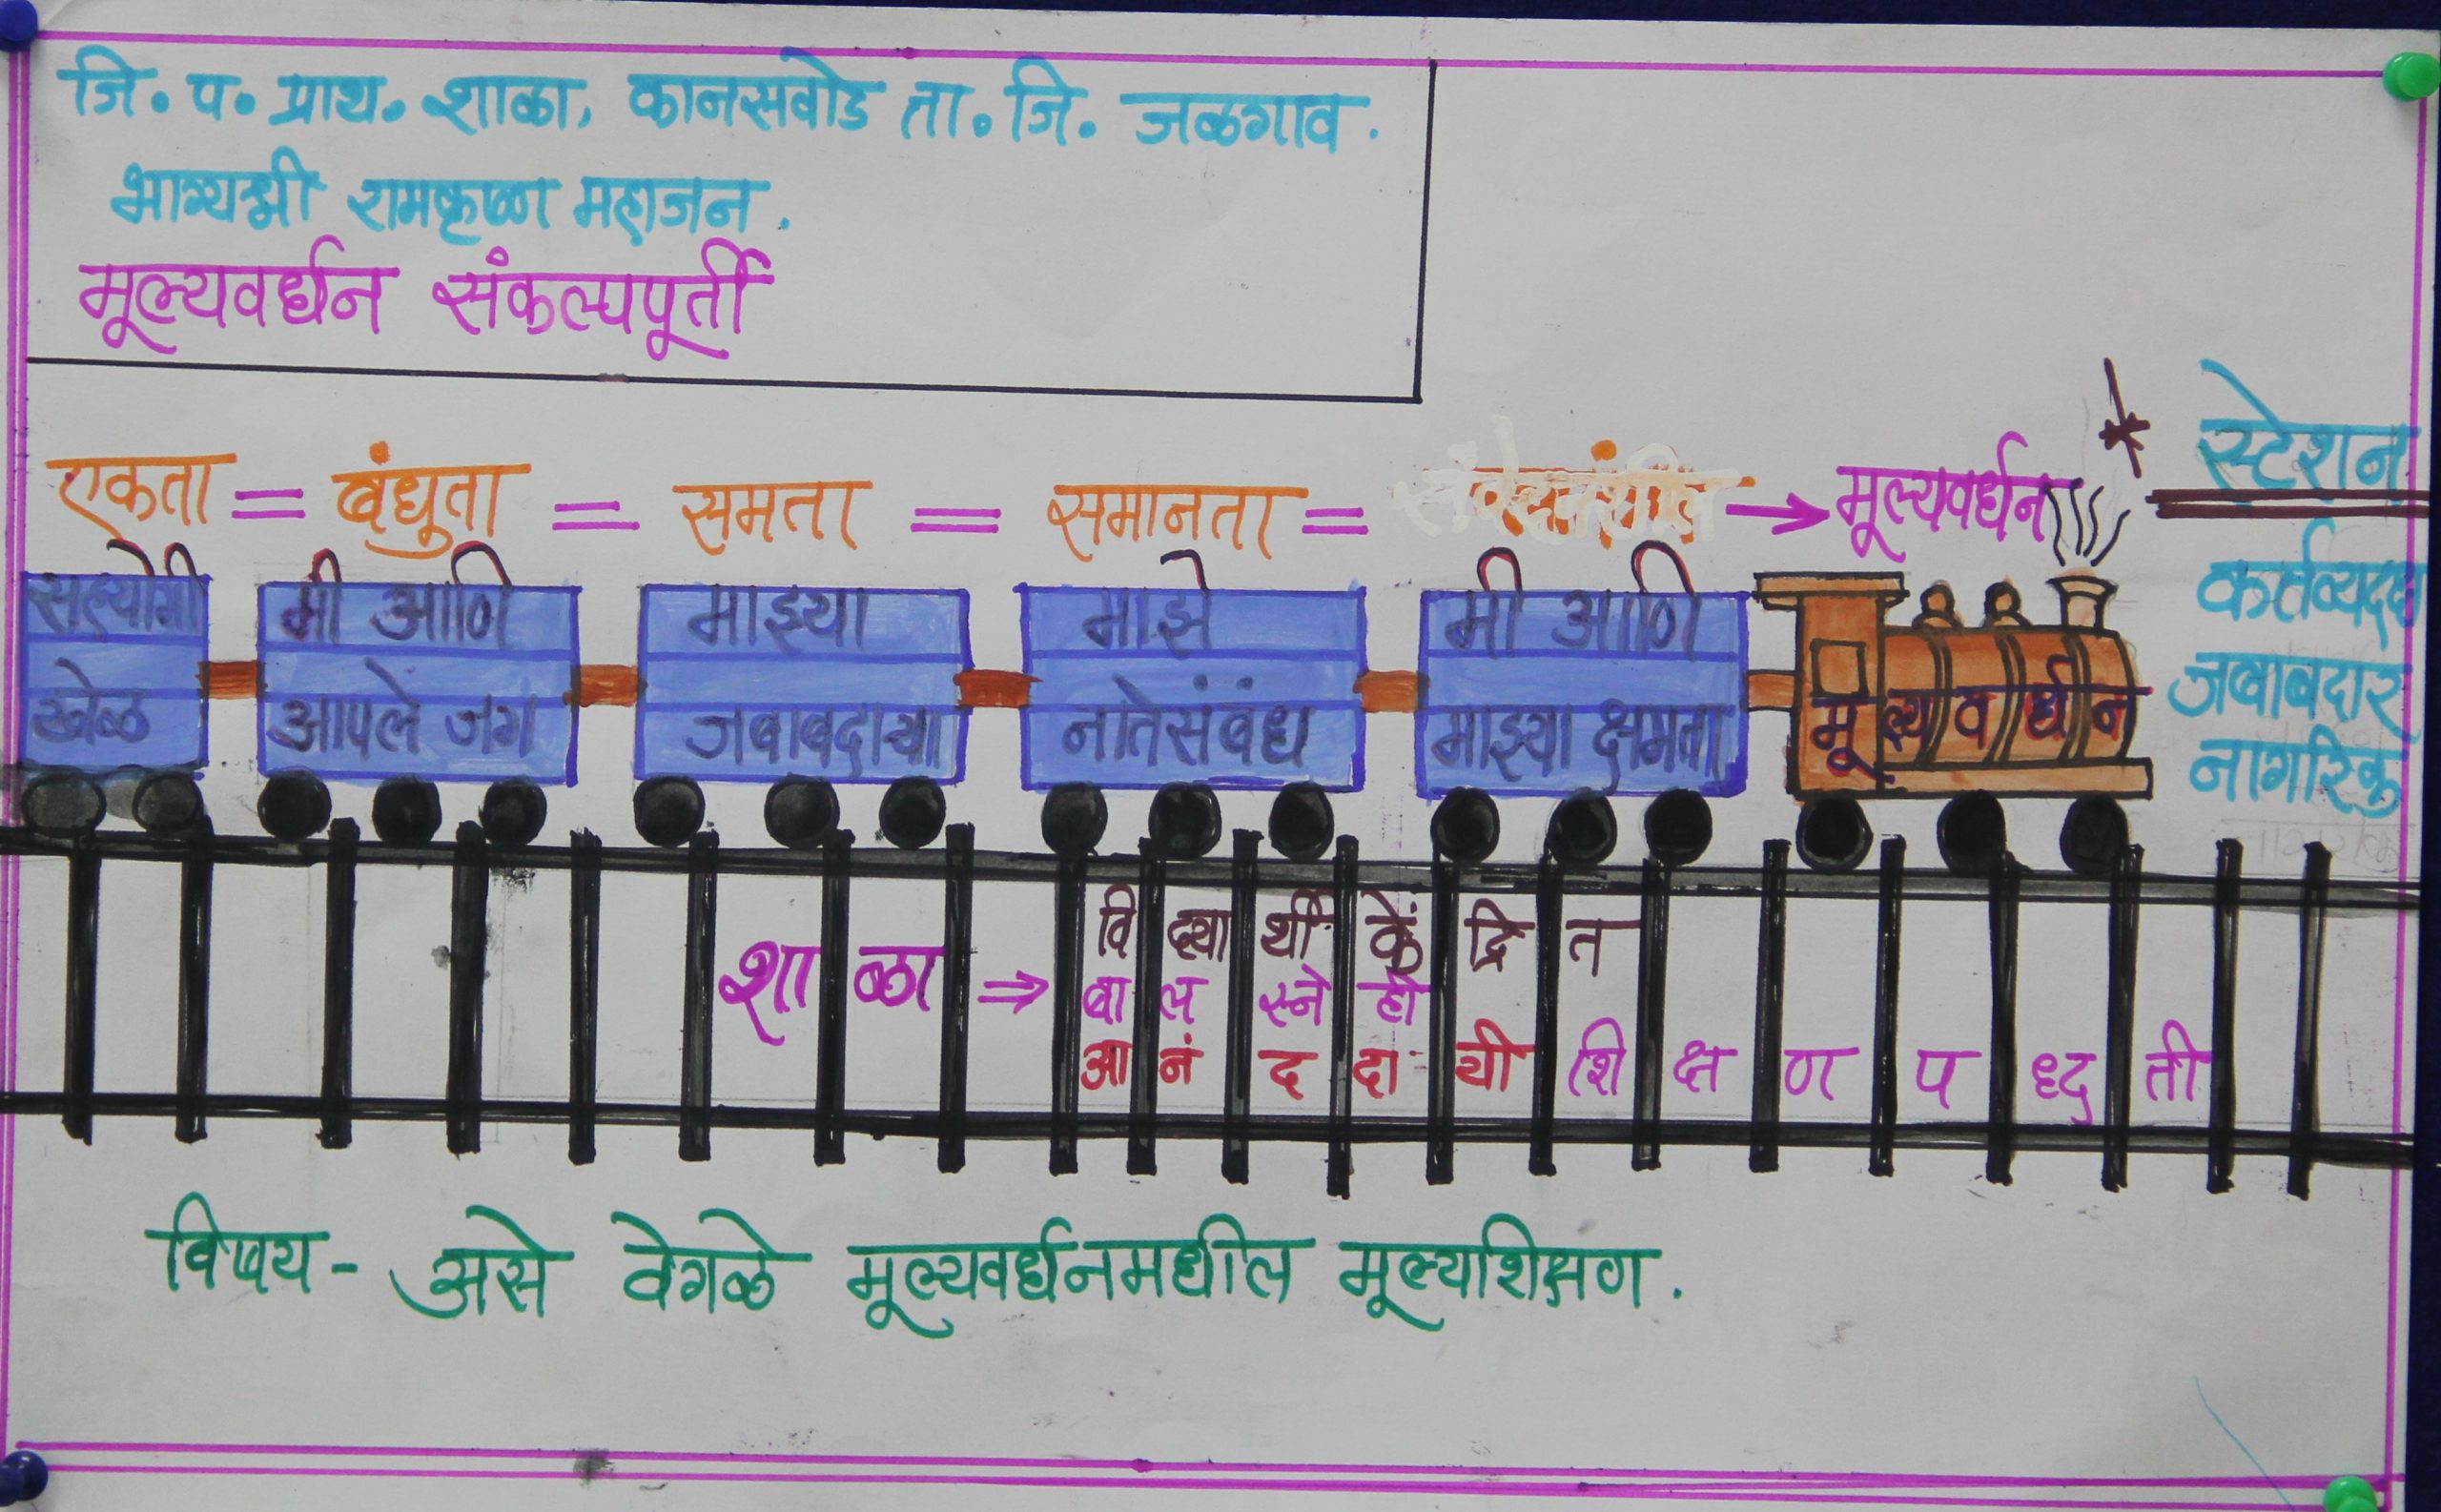 जि. प. प्राथ. शाळा, कानसवोड ता. जि. जळगाव.
भाग्यश्री रामकृष्ण महाजन.
मूल्यवर्धन संकल्पपूर्ती
एकता = बंधुता = समता = समानता = → मूल्यवर्धन
स्टेशन
कर्तव्यदक्ष
जबाबदार
नागरिक
सहयोगी
खेळ
मी आणि
आपले जग
माझ्या
जबाबदाऱ्या
माझे
नातेसंबंध
मी आणि
माझ्या क्षमता
मूल्यवर्धन
शाळा ⇒
विद्यार्थी केंद्रित
बालस्नेही
आनंददायी शिक्षण पध्दती
विषय - असे वेगळे मूल्यवर्धनमधील मूल्यशिक्षण.